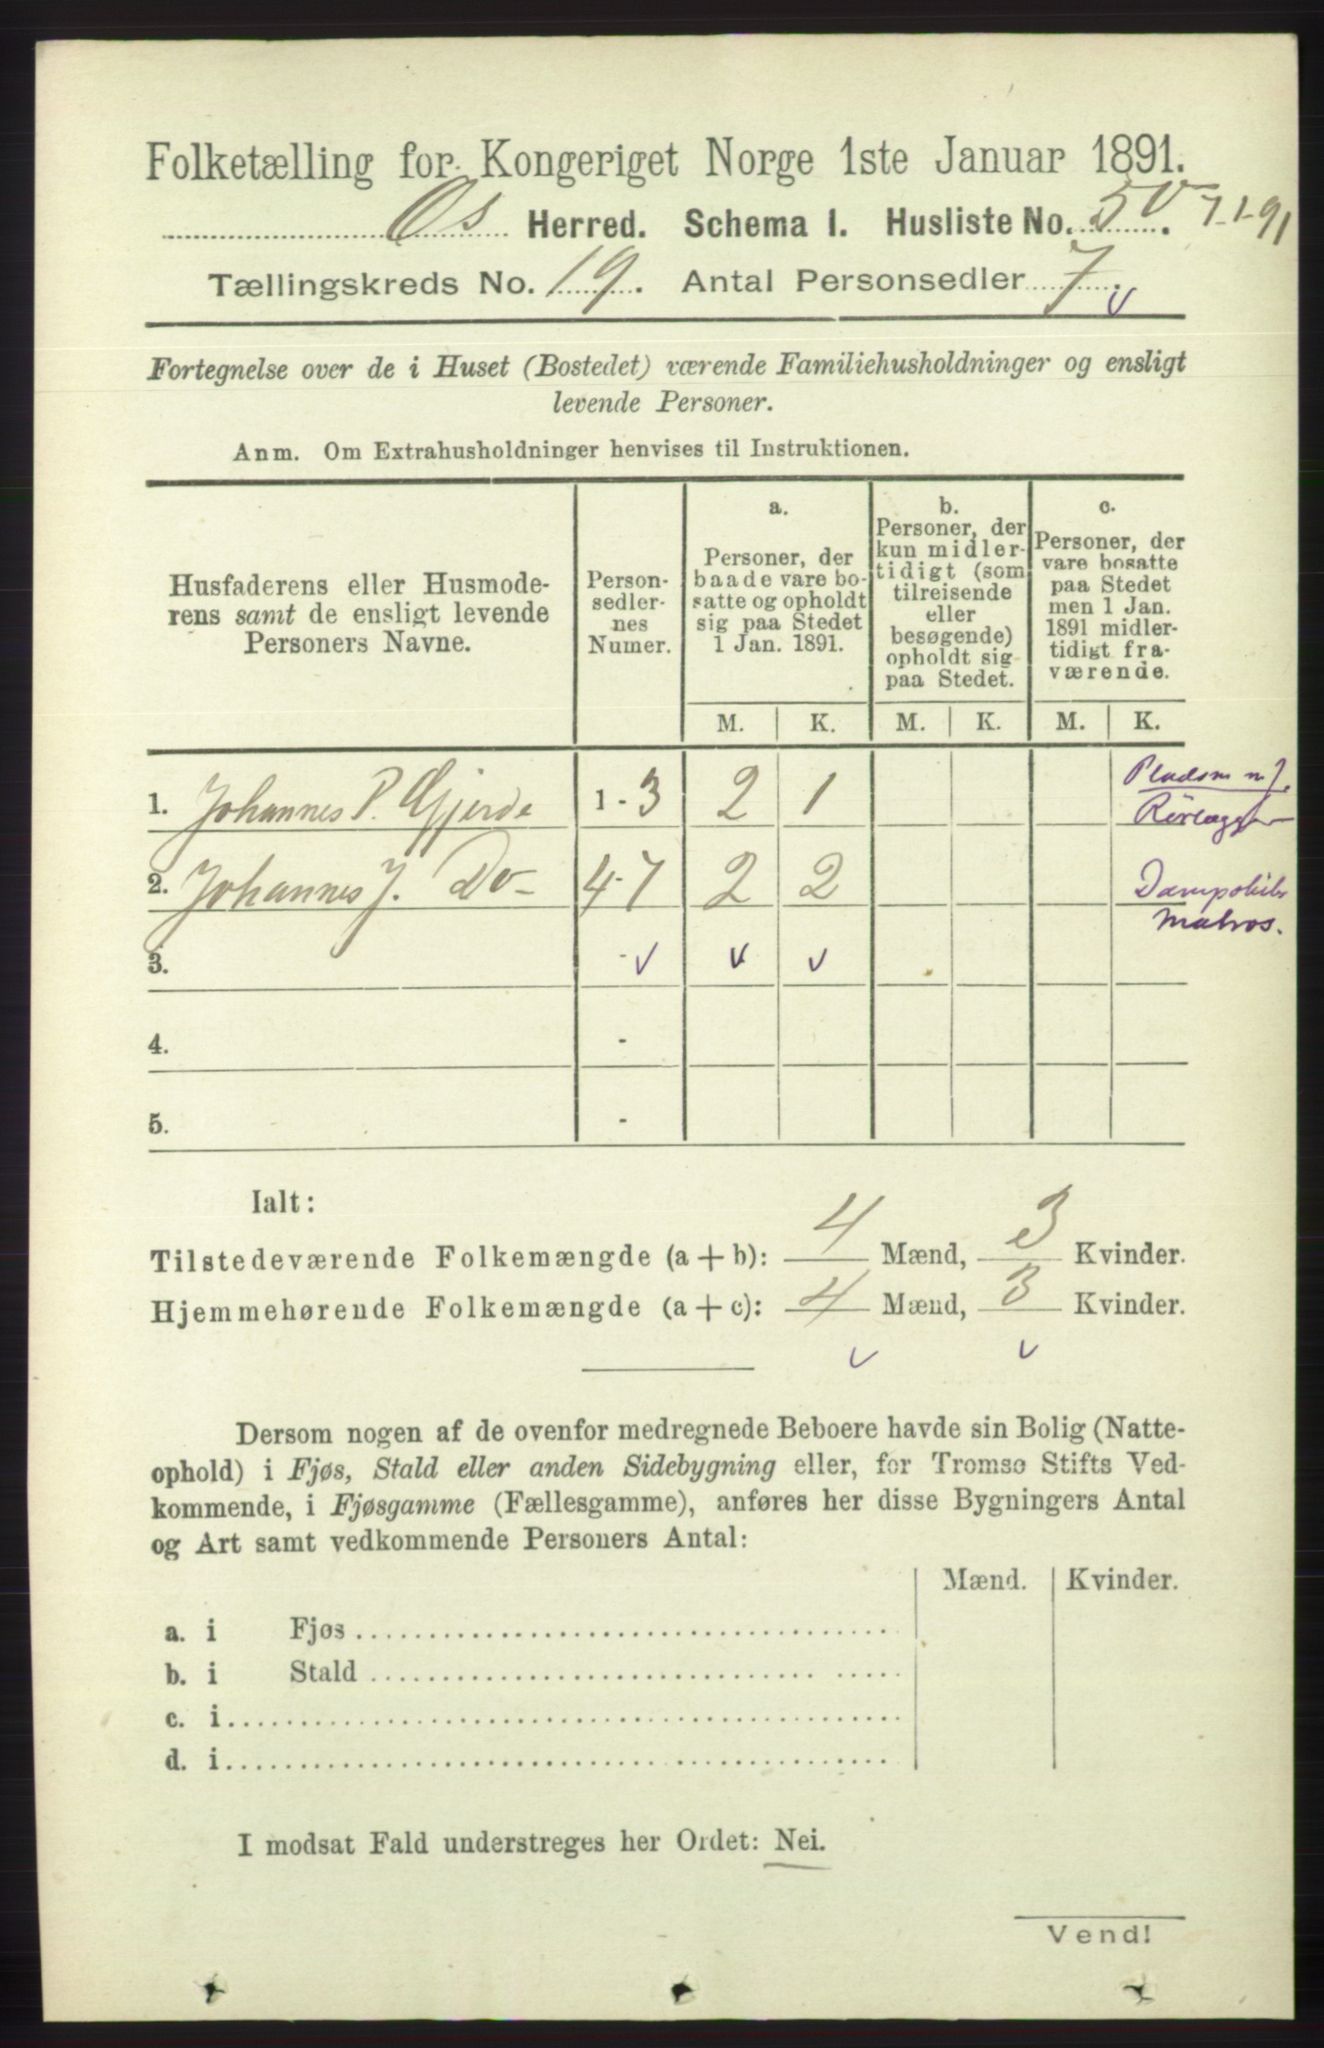 Folketælling for Kongeriget Norge 1ste Januar 1891.
Os Herred. Schema I. Husliste No. 50. 7-1-91
Tællingskreds No. 19. Antal Personsedler 7.
Fortegnelse over de i Huset (Bostedet) værende Familiehusholdninger og ensligt
levende Personer.
Anm. Om Extrahusholdninger henvises til Instruktionen.
Husfaderens eller Husmode-
rens samt de ensligt levende
Personers Navne.
Person-
sedler-
nes
Numer.
a.
Personer, der
baade vare bo-
satte og opholdt
sig paa Stedet
1 Jan. 1891.
b.
Personer, der
kun midler-
tidigt (som
tilreisende
eller
besøgende)
opholdt sig
paa Stedet.
c.
Personer, der
vare bosatte
paa Stedet
men 1 Jan.
1891 midler-
tidigt fra-
værende.
M. K. M. K. M. K.
1. Johannes P. Gjerde 1-3 2 1 Pladsm m J.
Rørlægger
2. Johannes J. Do- 4-7 2 2
Matros.
3. - v v v
4. -
5. -
Ialt:
Tilstedeværende Folkemængde (a+b): 4 Mænd, 3 Kvinder.
Hjemmehørende Folkemængde (a+c): 4 Mænd, 3 Kvinder.
v v
Dersom nogen af de ovenfor medregnede Beboere havde sin Bolig (Natte-
ophold) i Fjøs, Stald eller anden Sidebygning eller, for Tromsø Stifts Ved-
kommende, i Fjøsgamme (Fællesgamme), anføres her disse Bygningers Antal
og Art samt vedkommende Personers Antal:
Mænd. Kvinder.
a. i Fjøs
b. i Stald
c. i
d. i
I modsat Fald understreges her Ordet: Nei.
Vend!